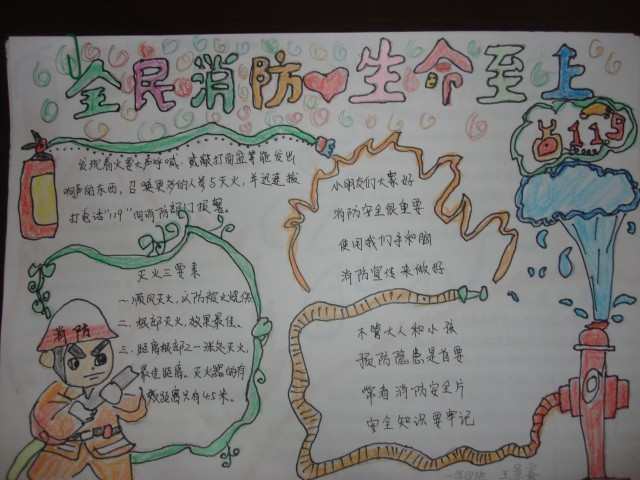 全民消防 生命至上
119
发现着火要大声呼喊，或敲打面盆等能发出
响声的东西，召唤更多的人参与灭火，并迅速拨
打电话"119"向消防部门报警。
小朋友们大家好
消防安全很重要
使用我们手和脑
消防宣传来做好
灭火三要素
一.顺风灭火，以防被火烧伤
二.根部灭火，效果最佳。
三.距离根部2一3米灭火，
最佳距离。灭火器的有
效距离只有4.5米。
消防
不管大人和小孩
预防隐患是首要
常看消防安全片
安全知识要牢记